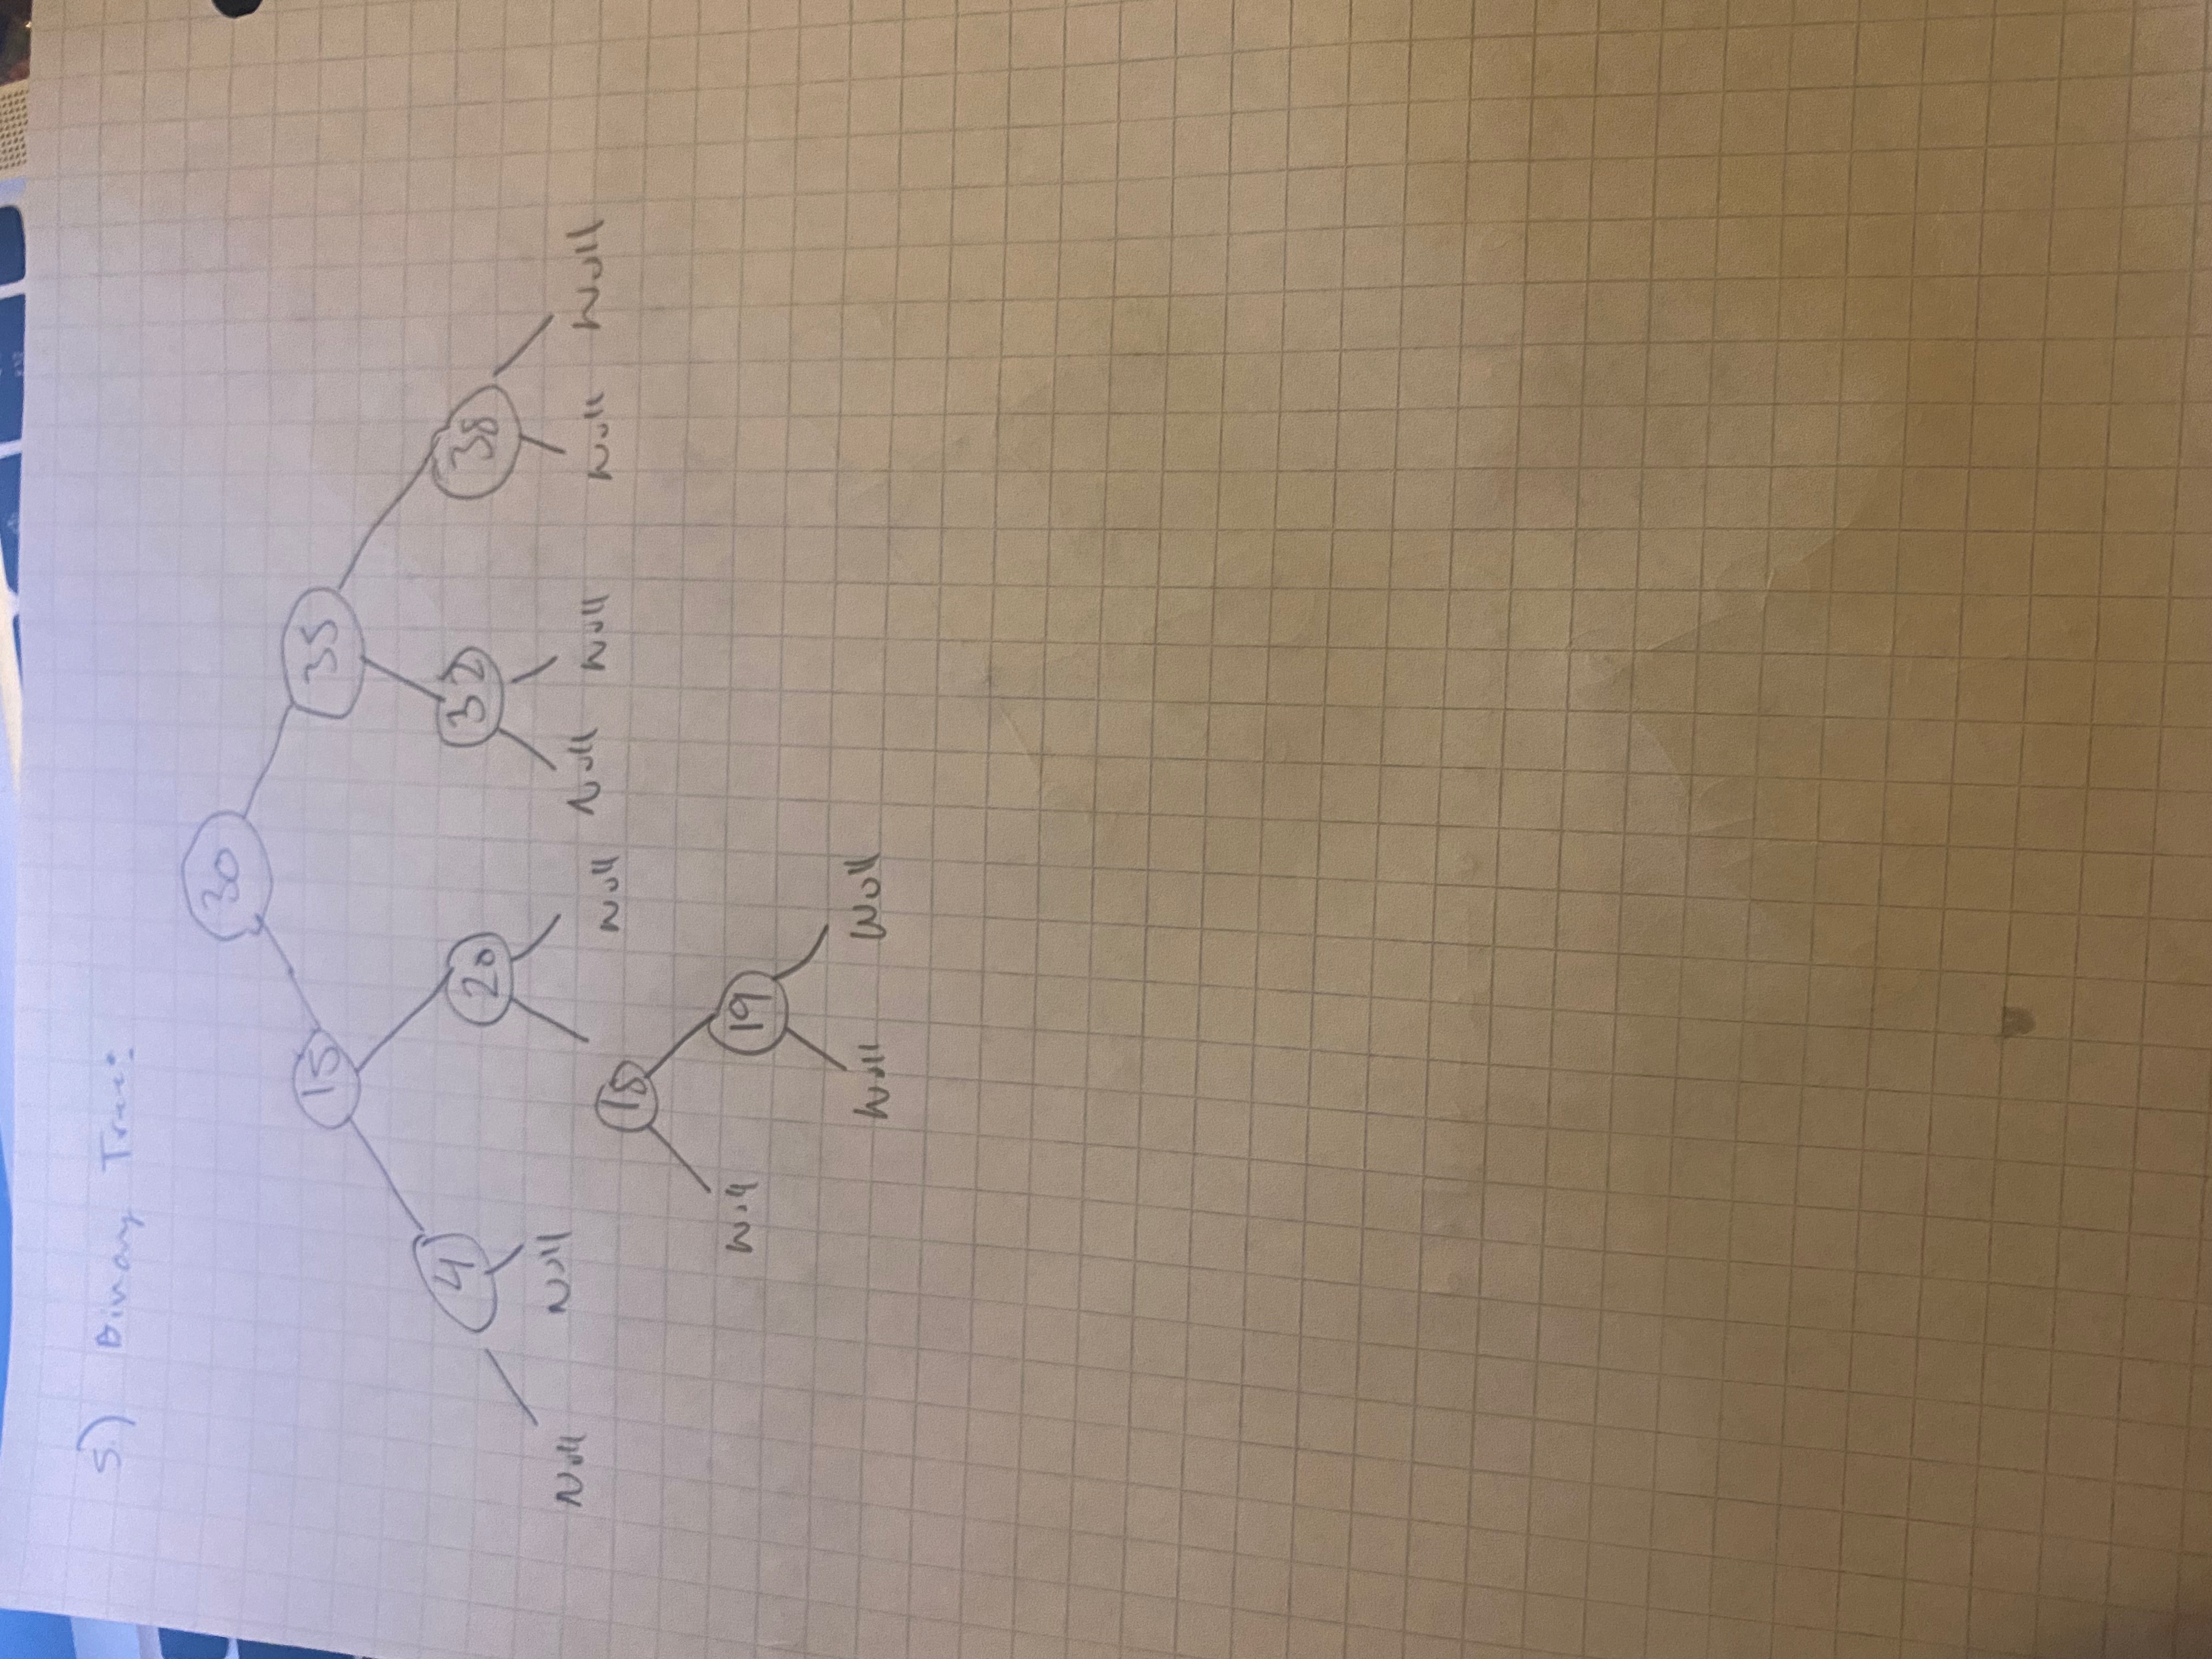 5.) Binary Tree:
30
15 35
4 20 32 38
Null Null Null Null Null Null Null
18
Null 19
Null Null